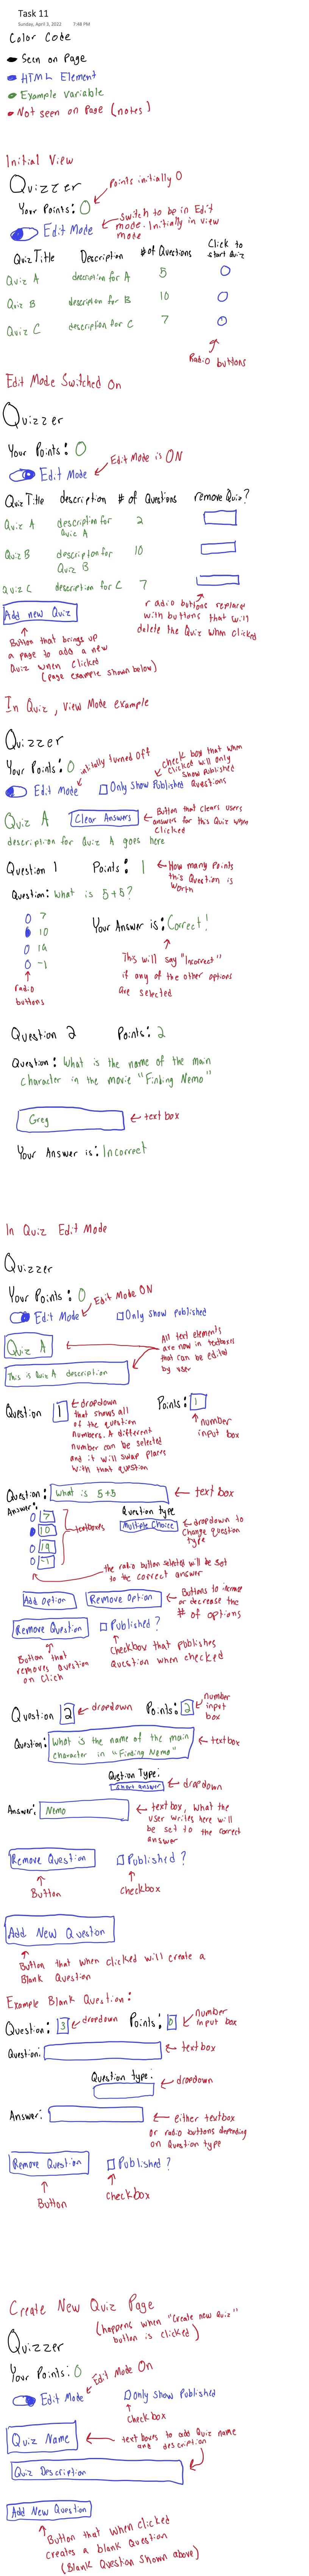 Task 11
Sunday, April 3, 2022 7:48 PM
Color Code
Seen on Page
HTML Element
Example Variable
Not seen on Page (notes)
Initial View
Quizzer
Points initially 0
Your Points: 0
Edit Mode
Switch to be in Edit mode. Initially in view mode
Quiz Title Description # of Questions Click to start quiz
Quiz A description for A 5
Quiz B description for B 10
Quiz C description for C 7
Radio buttons
Edit Mode Switched On
Quizzer
Your Points: 0
Edit Mode is ON
Edit Mode
Quiz Title description # of Questions remove Quiz?
Quiz A description for Quiz A 2
Quiz B description for Quiz B 10
Quiz C description for C 7
Add new Quiz
radio buttons replaced with buttons that will delete the Quiz when clicked
Button that brings up a page to add a new Quiz when clicked (page example shown below)
In Quiz, View Mode example
Quizzer
Your Points: 0
initially turned off
check box that when clicked will only show published Questions
Edit Mode Only show Published
Quiz A Clear Answers
Button that clears users answers for this Quiz when clicked
description for Quiz A goes here
Question 1 Points: 1
How many points this Question is worth
Question: What is 5+5?
7
10
19
-1
Your Answer is: Correct!
radio buttons
This will say "Incorrect" if any of the other options are selected
Question 2 Points: 2
Question: What is the name of the main character in the movie "Finding Nemo"
Greg
text box
Your Answer is: Incorrect
In Quiz Edit Mode
Quizzer
Your Points: 0
Edit Mode ON
Edit Mode Only show published
Quiz A
This is Quiz A description
All text elements are now in textboxes that can be edited by user
Question 1 Points: 1
dropdown that shows all of the question numbers. A different number can be selected and it will swap places with that question
number input box
Question: What is 5+5
text box
Answer:
7
10
19
-1
textboxes
Question type
Multiple Choice
dropdown to change question type
the radio button selected will be set to the correct answer
Add Option Remove Option
Buttons to increase or decrease the # of options
Remove Question Published?
Button that removes question on click
Checkbox that publishes question when checked
Question 2 dropdown Points: 2
number input box
Question: What is the name of the main character in "Finding Nemo"
textbox
Question Type:
short answer
dropdown
Answer: Nemo
textbox, what the user writes here will be set to the correct answer
Remove Question Published?
Button
checkbox
Add New Question
Button that when clicked will create a Blank Question
Example Blank Question:
Question: 3 dropdown Points: 0
number input box
Question:
text box
Question type:
dropdown
Answer:
either textbox or radio buttons depending on Question type
Remove Question Published?
Button
Checkbox
Create New Quiz Page
(happens when "Create new Quiz" button is clicked)
Quizzer
Your Points: 0
Edit Mode On
Edit Mode Only show Published
check box
Quiz Name
text boxes to add Quiz name and description
Quiz Description
Add New Question
Button that when clicked creates a blank Question (Blank Question shown above)